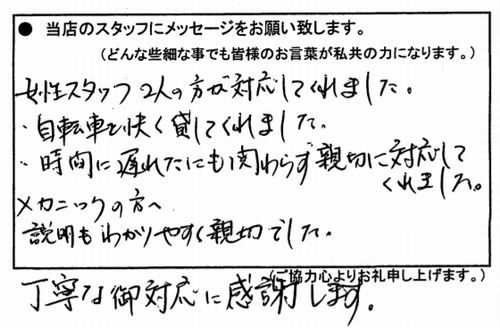 ● 当店のスタッフにメッセージをお願い致します。
(どんな些細な事でも皆様のお言葉が私共の力になります。)
女性スタッフ2人の方が対応してくれました。
・自転車を快く貸してくれました。
・時間に遅れたにも関わらず親切に対応して
くれました。
メカニックの方へ
説明もわかりやすく親切でした。
(ご協力心よりお礼申し上げます。)
丁寧な御対応に感謝します。